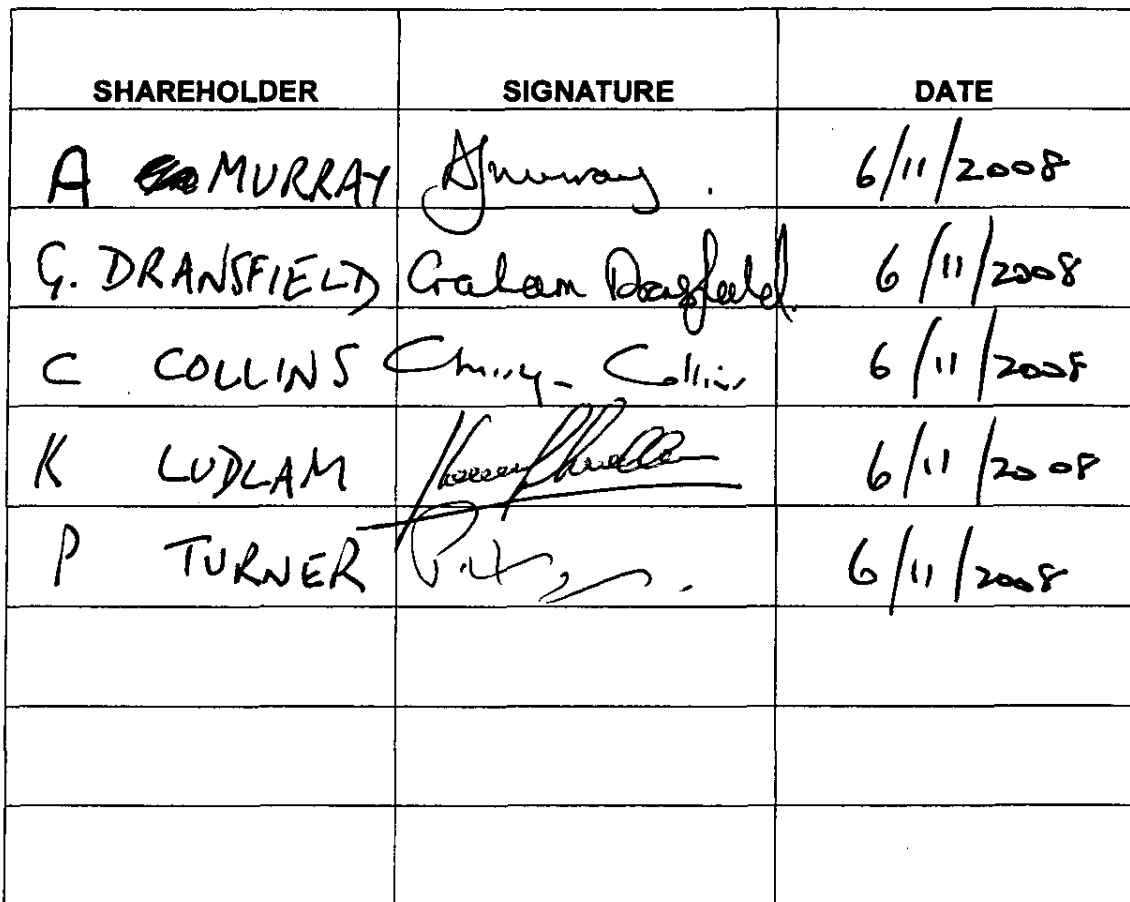 SHAREHOLDER SIGNATURE DATE
A MURRAY AJMurray. 6/11/2008
G. DRANSFIELD Graham Dransfield. 6/11/2008
C COLLINS Collins 6/11/2008
K LUDLAM 6/11/2008
P TURNER 6/11/2008